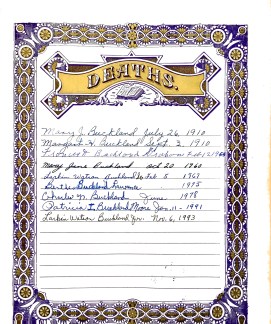 DEATHS.
Mary J. Buckland July 26, 1910
Margaret H. Buckland Sept. 3, 1910
Buckland
Mary Jane Buckland Oct 20 1960
Larkin Watson Buckland Sr Feb 5 1967
Bertha Buckland 1975
Charles N. Buckland June 1978
Patricia I. Buckland Moore Jan. 11 - 1991
Larkin Watson Buckland Jr. Nov. 6, 1993